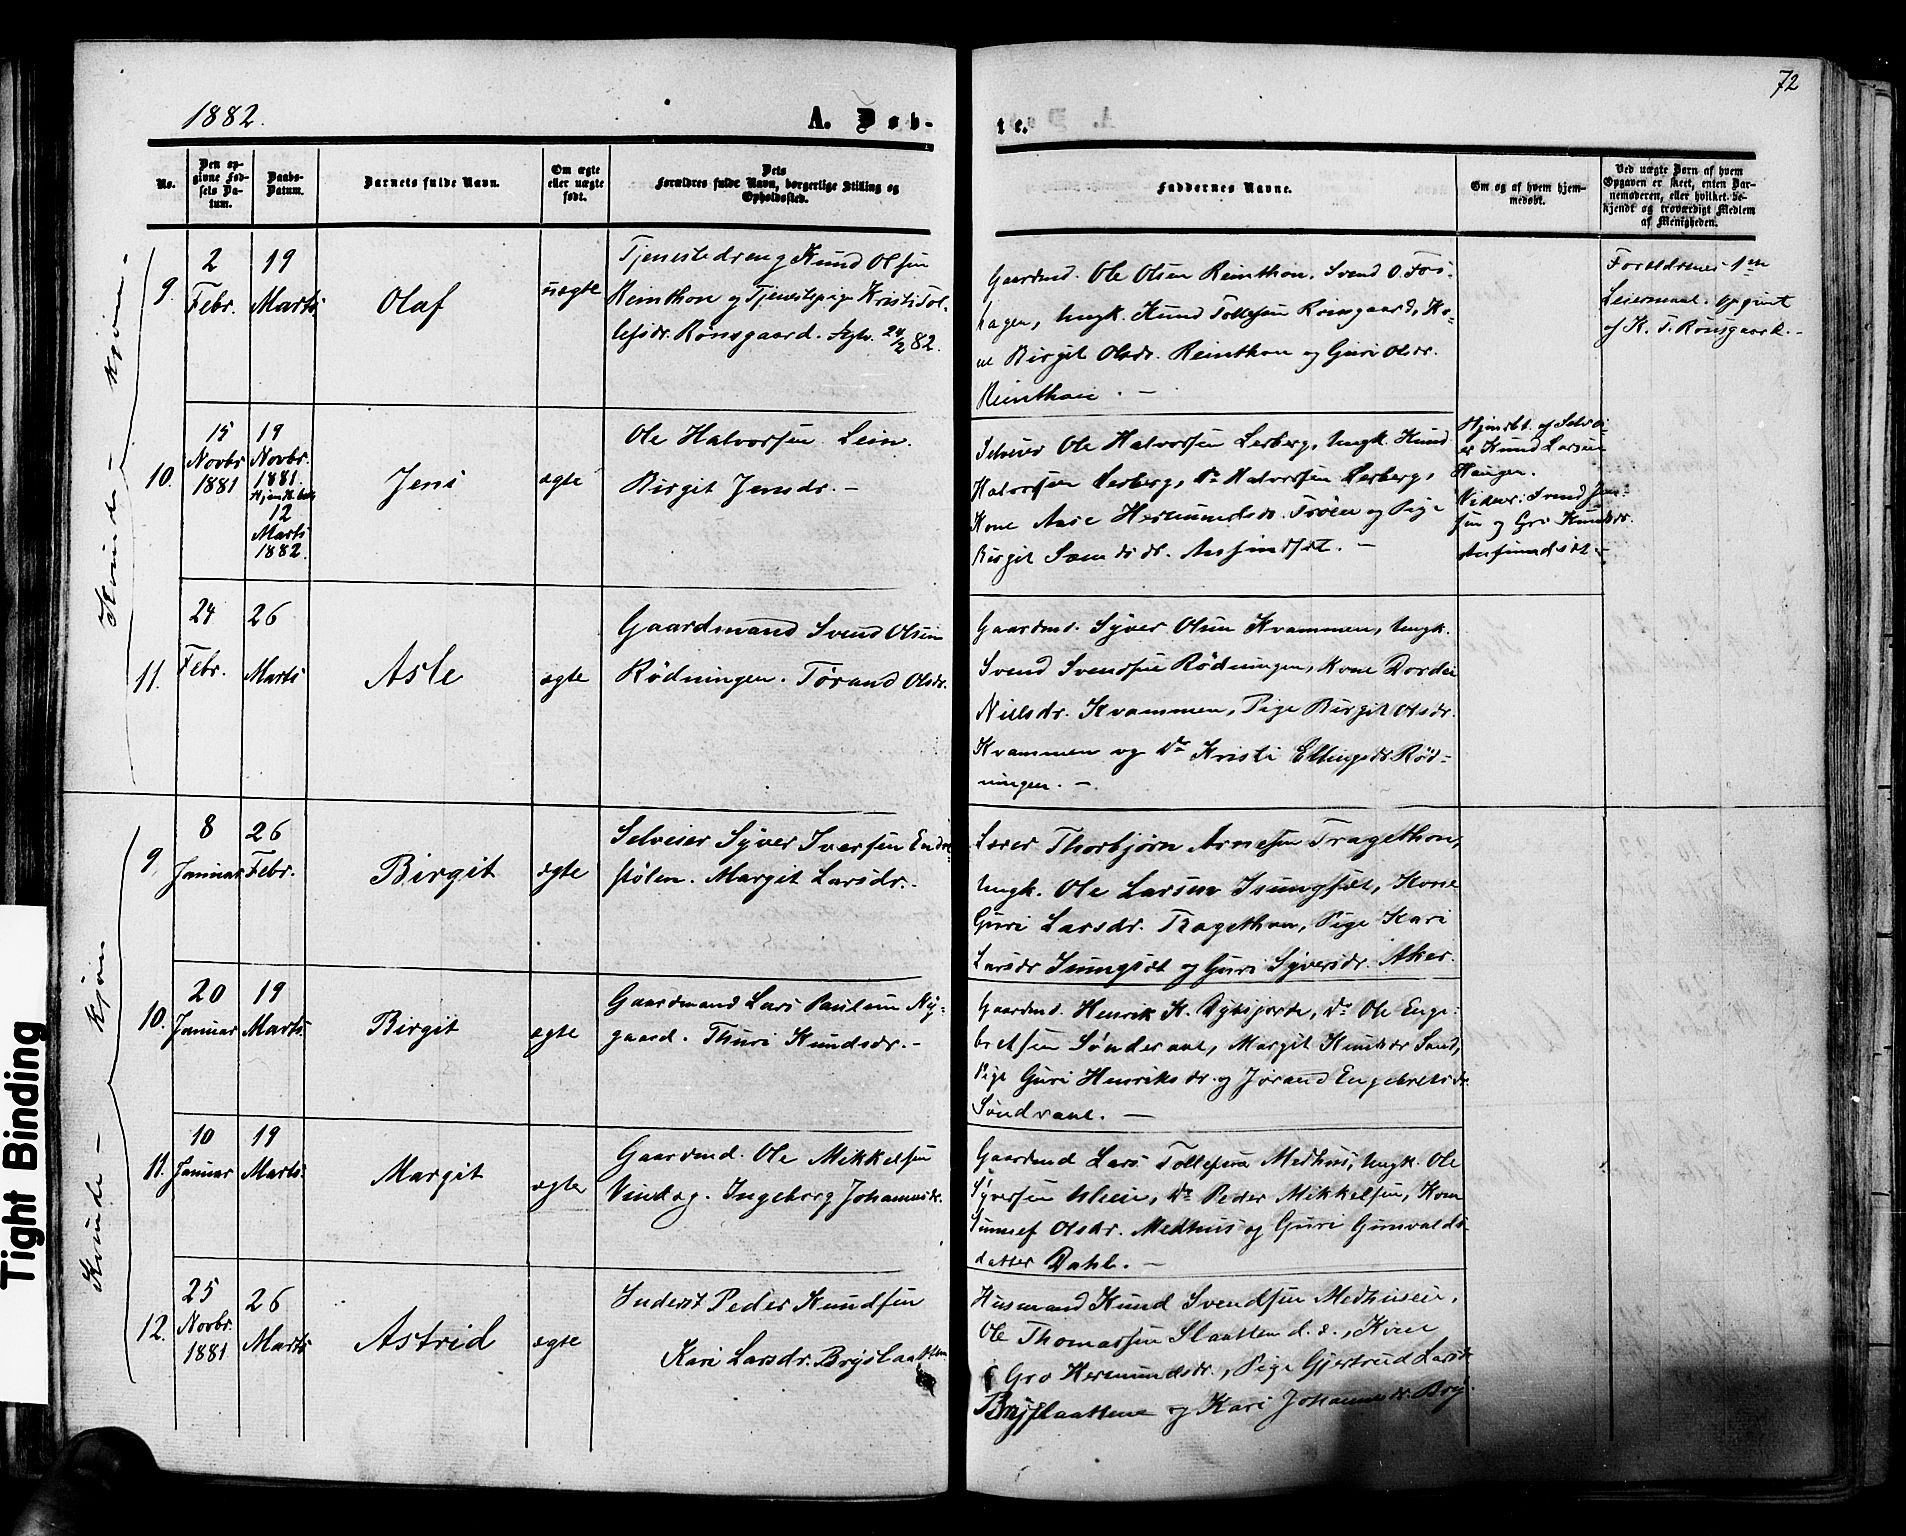 72
1882.
A. Døb-
te.
No.
Den op-
givne Fød-
sels Da-
tum.
Daabs-
Datum.
Barnets fulde Navn.
Om ægte
eller uægte
født.
Dets
Forældres fulde Navn, borgerlige Stilling og
Opholdssted.
Faddernes Navne.
Om og af hvem hjem-
medøbt.
Ved uægte Børn af hvem
Opgaven er skeet, enten Bar-
nemoderen, eller hvilket be-
kjendt og troværdigt Medlem
af Menigheden.
9.
2
Febr.
19
Marts
Olaf
uægte
Tjenestedreng Knud Olsen
Reinthon og Tjenestepige Kristi Tol-
lefsdr. Rønsgaard. 24/2 82.
Gaardmd. Ole Olsen Reinthon. Svend O. Fos-
hagen, Ungk. Knud Tollefsen Rønsgaard, Ko-
ne Birgit Olsdr. Reinthon og Guri Olsdr.
Reinthon. —
Forældrenes 1ste
Leiermaal. Opgivet
af K. T. Rønsgaard. -
10.
15
Novbr
1881
19
Novbr.
1881.
Hjemdøbt
12
Marts
1882.
Jens
ægte
Ole Halvorsen Lein.
Birgit Jensdr. —
Selveier Ole Halvorsen Lerberg, Ungk. Knud
Halvorsen Lerberg, Do Halvorsen Lerberg,
Kone Aase Hermundsdr. Trøen og Pige
Birgit Svendsdr. Ansindset. —
Hjemdbt. af Selvei
er Knud Larsen
Haugen.
Vidner: Svend Jen-
sen og Gro Knudsdr.
Ansindset -
11.
24
Febr.
26
Marts
Asle
ægte
Gaardmand Svend Olsen
Rødningen. Tørand Olsdr.
Gaardmd. Syver Olsen Kvammen, Ungk.
Svend Svendsen Rødningen, Kone Dordei
Nielsdr. Kvammen, Pige Birgit Olsdr.
Kvammen og Do Kristi Ellingsdr Rød-
ningen. —
9.
8
Januar
26
Febr.
Birgit
ægte
Selveier Syver Iversen Endre
stølen. Margit Larsdr. -
Lærer Thorbjørn Arnesen Tragethon,
Ungk. Ole Larsen Isungset, Kone
Guri Larsdr. Tragethon, Pige Kari
Larsdr Isungset og Guri Syversdr. Aker.
10.
20
Januar
19
Marts.
Birgit
ægte
Gaardmand Lars Paulsen Ny-
gaard. Thuri Knudsdr. -
Gaardmd. Henrik K. Villsjorde, Do Ole Enge-
bretsen Sønderaal, Margit Knudsdr Sand,
Pige Guri Henriksdr. og Jørand Engebretsdr.
Søndraal. —
11.
10
Januar
19
Marts.
Margit
ægte
Gaardmd. Ole Mikkelsen
Vindeg. Ingeborg Johannesdr.
Gaardmd Lars Tollefsen Medhus, Ungk. Ole
Syversen Uleie, Do Peder Mikkelsen, Kone
Sunnef Olsdr. Medhus og Guri Gunvalds-
datter Dahl. —
12.
25
Novbr.
1881
26
Marts
Astrid
ægte
Inderst Peder Knudsen
Kari Larsdr. Brøslaatten
Husmand Knud Svendsen Medhuseie.
Ole Thomassen Slaatten d. s., Kone
Gro Hermundsdr., Pige Gjertrud Larsdr
Brøslaattene og Kari Johannesdr. Brø-
Kvinde- kjøn -
Kvinde - kjøn
Tight Binding